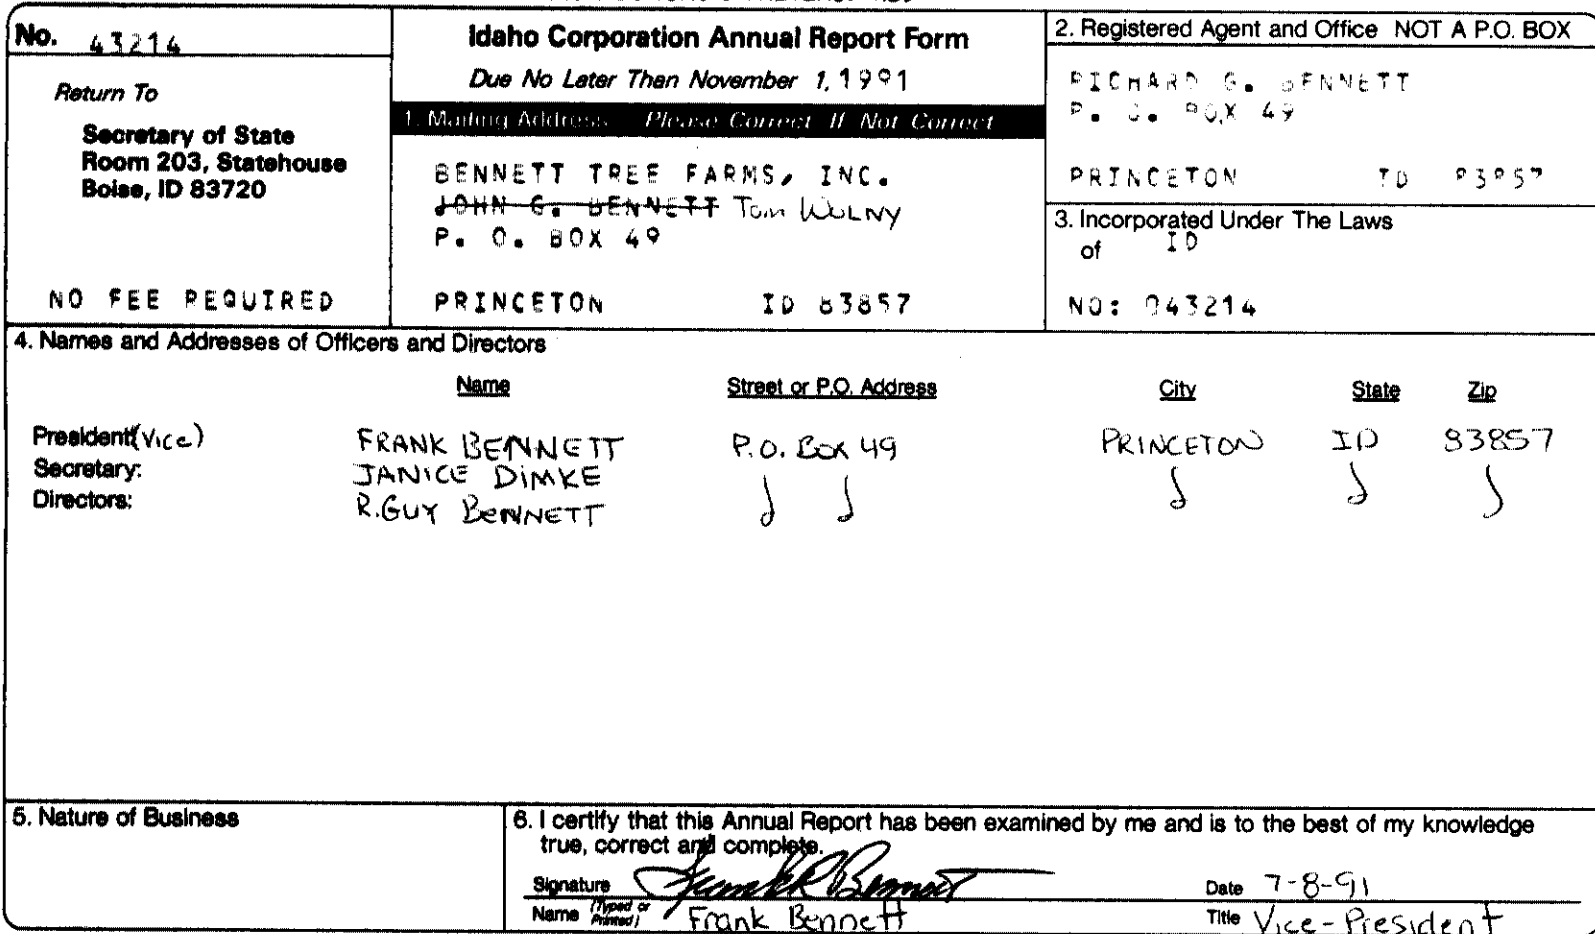 No. 43214
Return To
Secretary of State
Room 203, Statehouse
Boise, ID 83720
NO FEE REQUIRED
Idaho Corporation Annual Report Form
Due No Later Than November 1, 1991
1. Mailing Address Please Correct If Not Correct
BENNETT TREE FARMS, INC.
JOHN G. BENNETT Tom WOLNY
P. O. BOX 49
PRINCETON ID 83857
2. Registered Agent and Office NOT A P.O. BOX
RICHARD G. BENNETT
P. O. BOX 49
PRINCETON ID 83857
3. Incorporated Under The Laws
of ID
NO: 043214
4. Names and Addresses of Officers and Directors
Name Street or P.O. Address City State Zip
President: (Vice) FRANK BENNETT P.O. Box 49 PRINCETON ID 83857
Secretary: JANICE DIMKE
Directors: R. GUY BENNETT
5. Nature of Business
6. I certify that this Annual Report has been examined by me and is to the best of my knowledge
true, correct and complete.
Signature Frank R Bennett Date 7-8-91
Name (Typed or Printed) Frank Bennett Title Vice-President